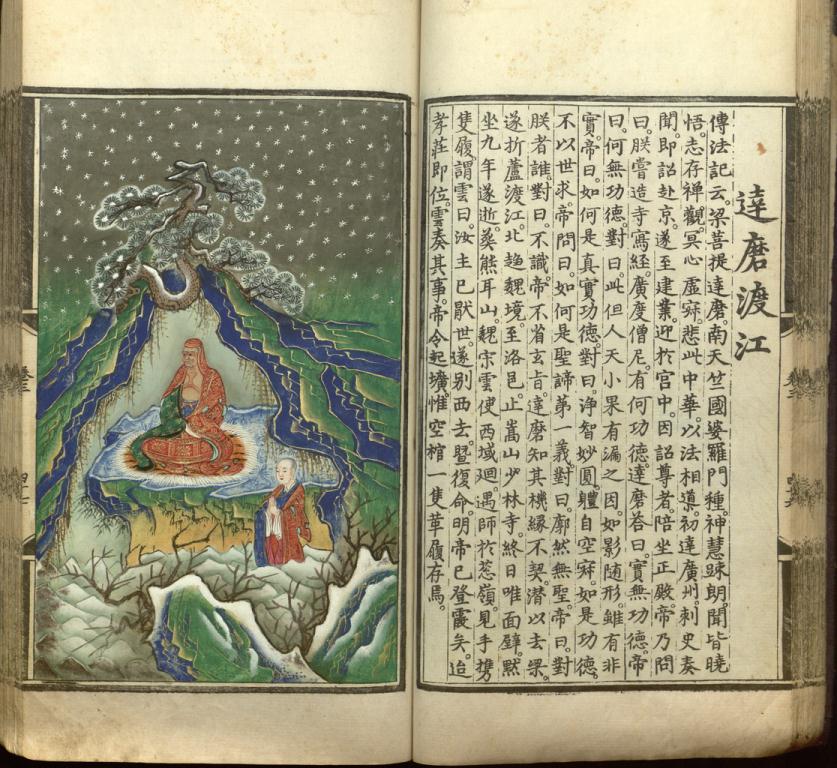 達磨渡江
傳法記云。梁菩提達磨。南天竺國婆羅門種。神慧踈朗。聞皆曉
悟。志存禅觀。冥心虛寂。悲此中華。以法相導。初達廣州。刺史奏
聞。即詔赴京。遂至建業。迎於宮中。因詔尊者。陪坐正殿。帝乃問
曰。朕嘗造寺寫經。廣度僧尼。有何功德。達磨答曰。實無功德。帝
曰。何無功德。對曰。此但人天小果有漏之因。如影随形。雖有非
實。帝曰。如何是真實功德。對曰。淨智妙圓。體自空寂。如是功德。
不以世求。帝問曰。如何是聖諦第一義。對曰。廓然無聖。帝曰。對
朕者誰。對曰。不識。帝不省玄旨。達磨知其機緣不契。潜以去梁。
遂折蘆渡江。北趍魏境。至洛邑。止嵩山少林寺。終日唯面壁默
坐九年遂逝。葬熊耳山。魏宗雲使西域廻。遇師於葱嶺。見手携
隻履。謂雲曰。汝主已厭世。遂別西去。暨復命。明帝已登霞矣。迨
孝莊即位。雲奏其事。帝令起壙。惟空棺一隻革履存焉。